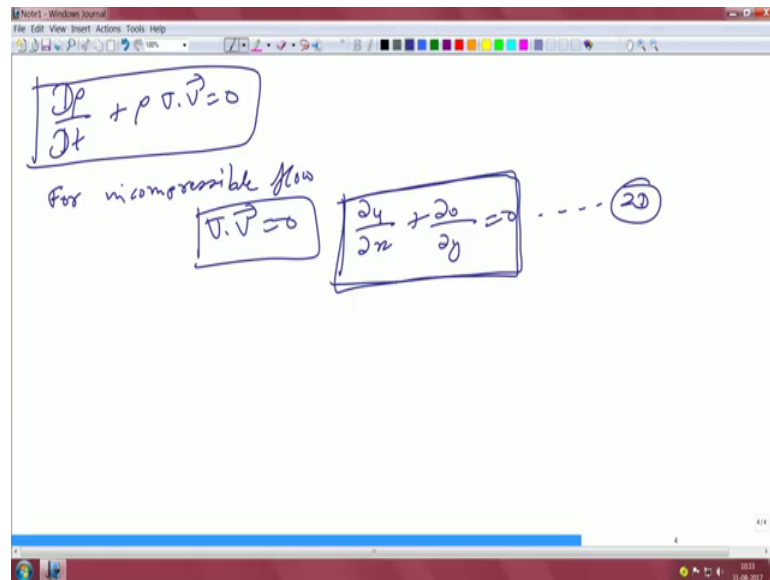 Note1 - Windows Journal
File Edit View Insert Actions Tools Help
100%
Dρ/Dt + ρ ∇.V⃗ = 0
For incompressible flow
∇.V⃗ = 0   ∂u/∂x + ∂v/∂y = 0 ---- 2D
4/4
4
10:33
31-08-2017